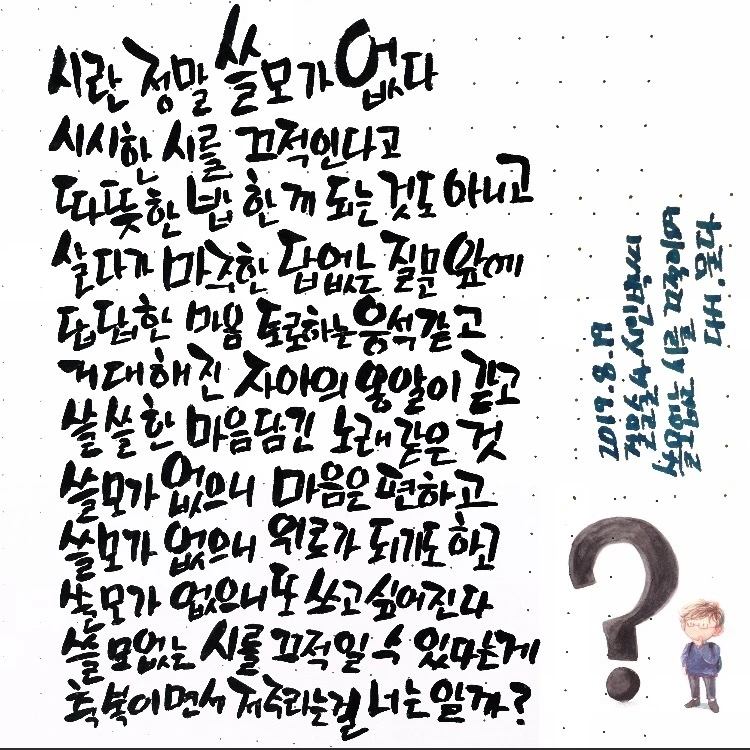 시란 정말 쓸모가 없다
시시한 시를 끄적인다고
따뜻한 밥 한 끼 되는 것도 아니고
살다가 마주한 답없는 질문 앞에
답답한 마음 토로하는 응석같고
거대해진 자아의 옹알이 같고
쓸쓸한 마음담긴 노래같은 것
쓸모가 없으니 마음은 편하고
쓸모가 없으니 위로가 되기도 하고
쓸모가 없으니 또 쓰고 싶어진다
쓸모없는 시를 끄적일 수 있다는게
축복이면서 저주라는걸 너는 알까?
2019. 8. 19
쓸모없는 시를 끄적이며
대서. 몰다